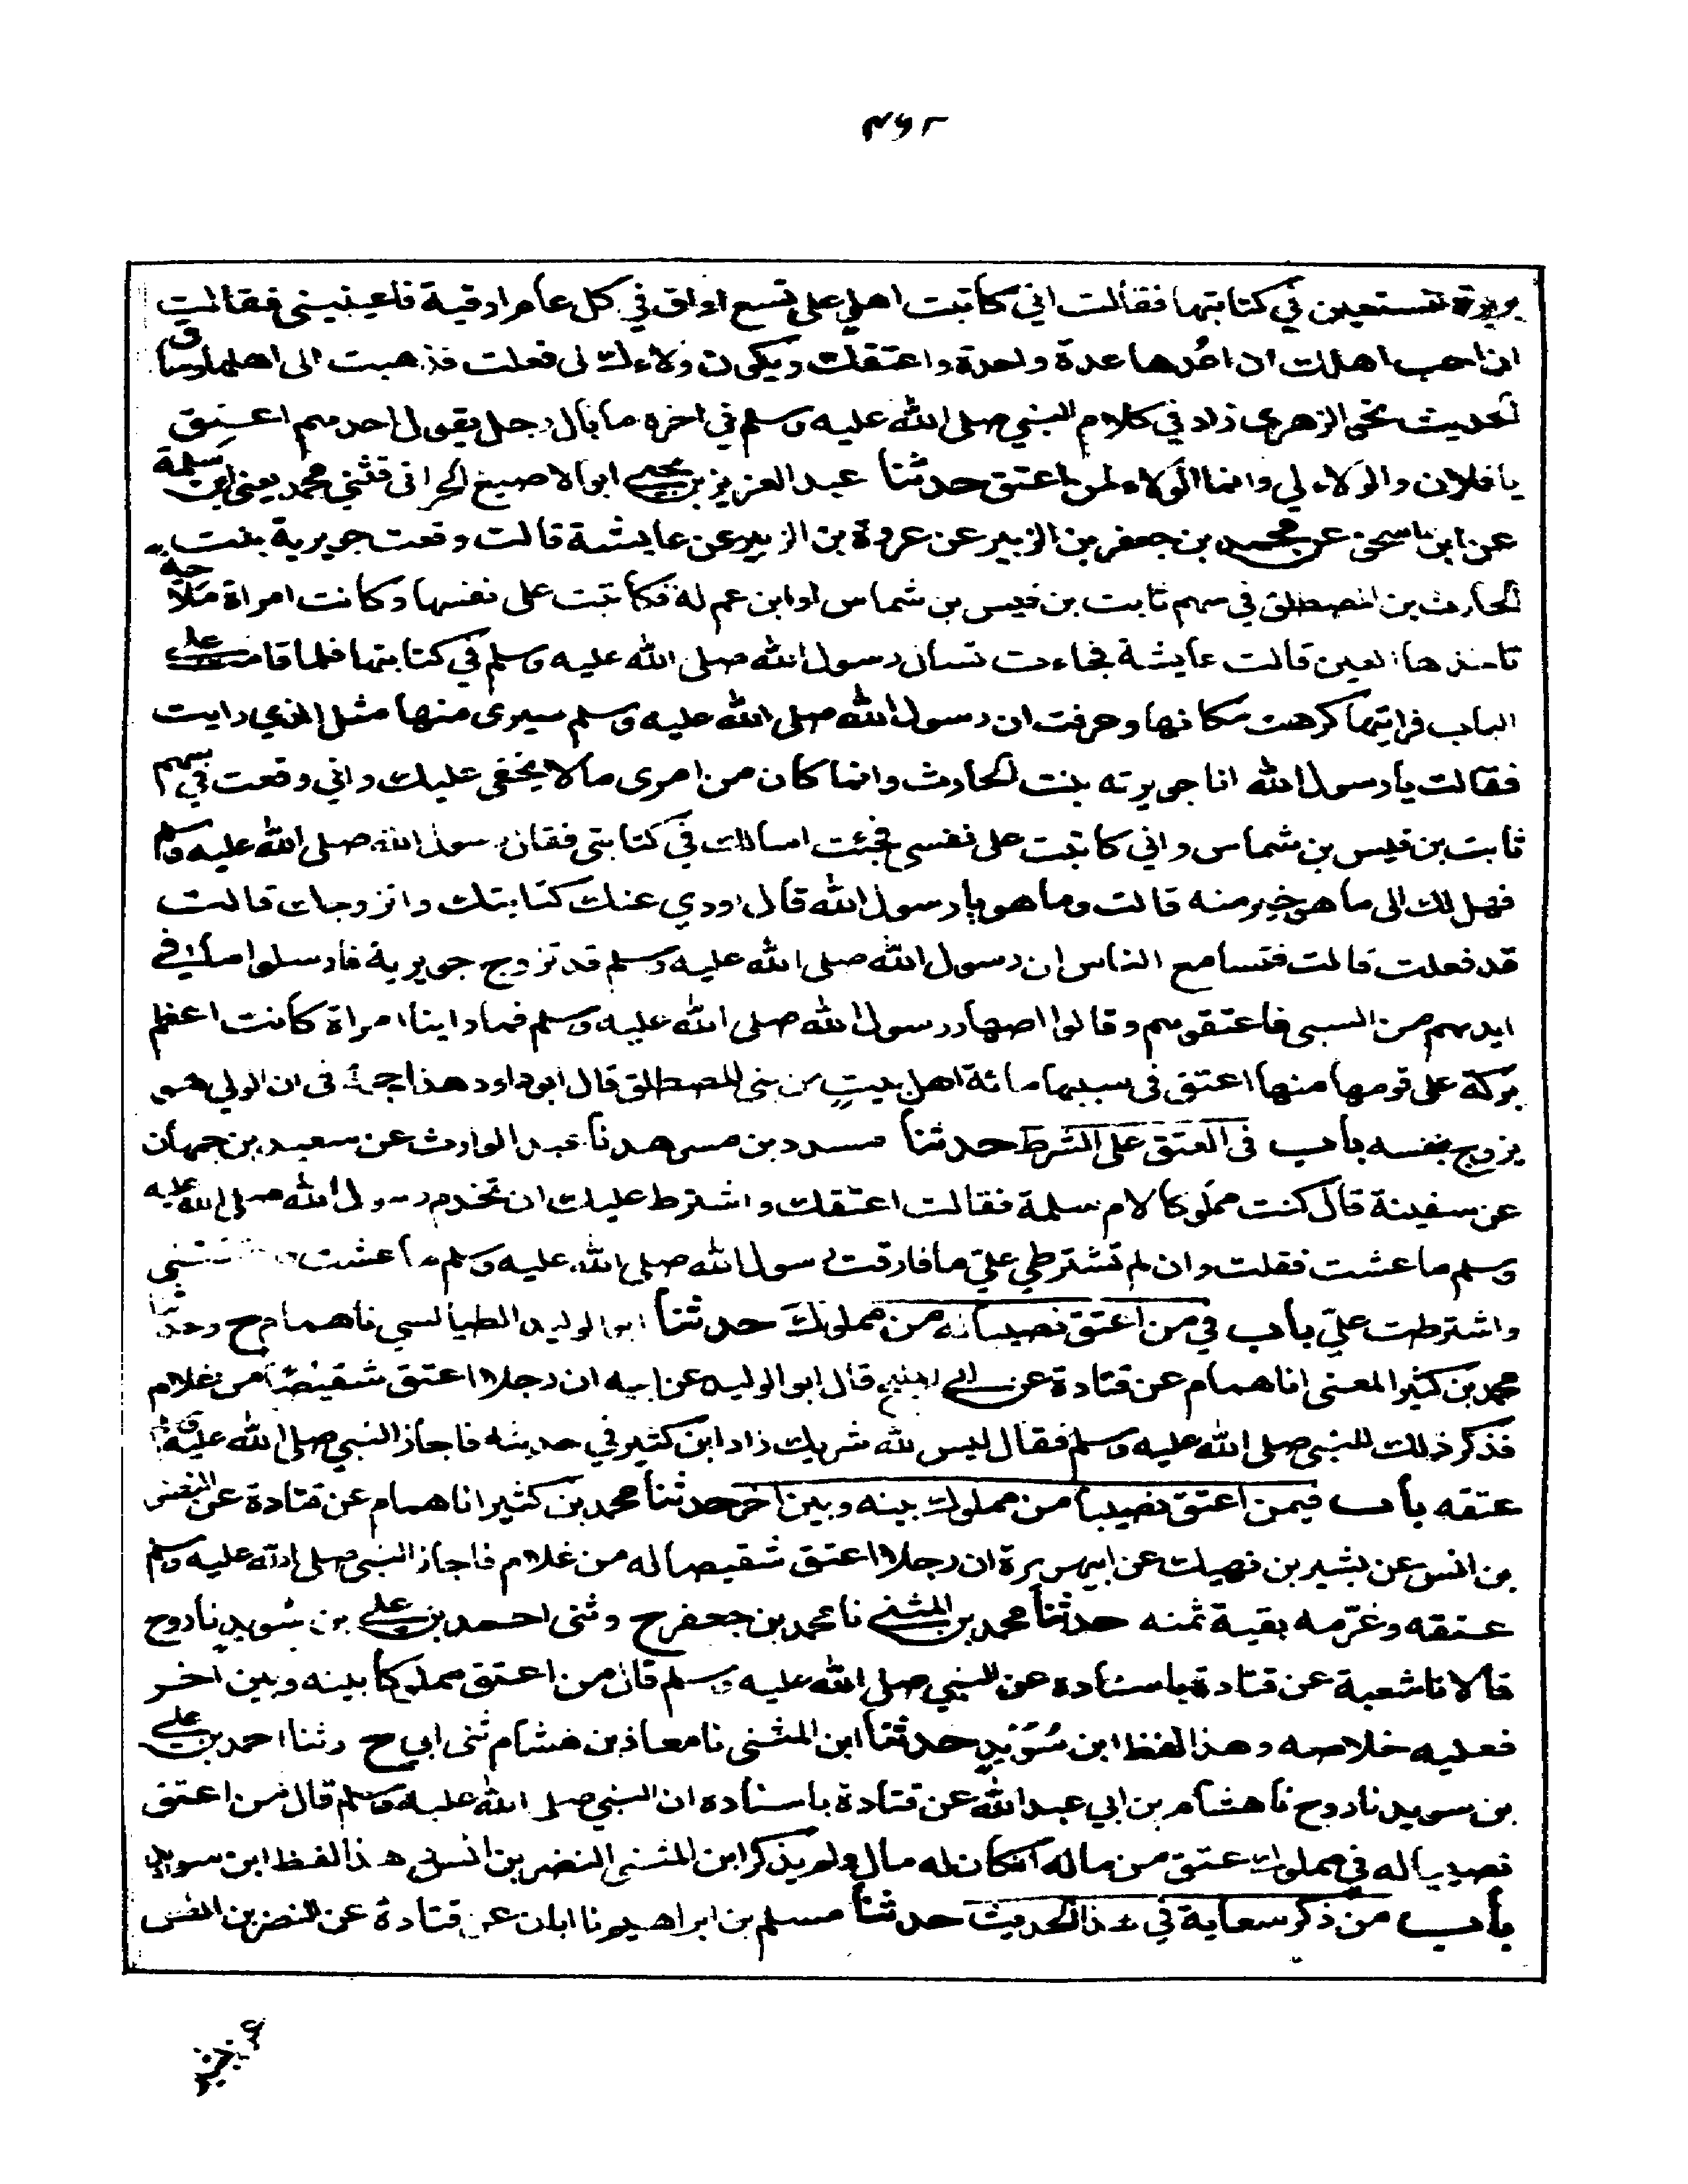 ۴۶۲
بريرة تستعين في كتابتها فقالت اني كاتبت اهلي على تسع اواق في كل عام اوقية فاعينيني فقالت
ان احب اهلك ان اعُدها عدة واحدة واعتقك ويكون ولاءك لي فعلت فذهبت الى اهلها وساق
الحديث نحو الزهري زاد في كلام النبي صلى الله عليه وسلم في اخره ما بال رجل يقول احدهم اعتق
يا فلان والولاء لي وانما الولاء لمن اعتق حدثنا عبد العزيز بن يحيى ابو الاصبغ الحراني قثني محمد يعني ابن سلمة
عن ابن اسحق عن محمد بن جعفر بن الزبير عن عروة بن الزبير عن عايشة قالت وقعت جويرية بنت
الحارث بن المصطلق في سهم ثابت بن قيس بن شماس او ابن عم له فكاتبت على نفسها وكانت امراة ملاحة
تاخذها العين قالت عايشة فجاءت تسال رسول الله صلى الله عليه وسلم في كتابتها فلما قامت على
الباب فرايتها كرهت مكانها وعرفت ان رسول الله صلى الله عليه وسلم سيرى منها مثل الذي رايت
فقالت يا رسول الله انا جويرته بنت الحارث وانما كان من امرى ما لا يخفى عليك واني وقعت في سهم
ثابت بن قيس بن شماس واني كاتبت على نفسي فجئت اسالك في كتابتي فقال رسول الله صلى الله عليه وسلم
فهل لك الى ما هو خير منه قالت وما هو يا رسول الله قال اودي عنك كتابتك واتزوجك قالت
قد فعلت قالت فتسامع الناس ان رسول الله صلى الله عليه وسلم قد تزوج جويرية فارسلوا ما في
ايديهم من السبي فاعتقوهم وقالوا اصهار رسول الله صلى الله عليه وسلم فما راينا امراة كانت اعظم
بركة على قومها منها اعتق في سببها مائة اهل بيتٍ من بني المصطلق قال ابو داود هذا حجة في ان الولي هو
يزوج بنفسه باب في العتق على الشرط حدثنا مسدد بن مسرهد نا عبد الوارث عن سعيد بن جمهان
عن سفينة قال كنت مملوكا لام سلمة فقالت اعتقك واشترط عليك ان تخدم رسول الله صلى الله عليه
وسلم ما عشت فقلت وان لم تشترطي عليّ ما فارقت رسول الله صلى الله عليه وسلم ما عشت
واشترطت عليّ باب في من اعتق نصيبا له من مملوك حدثنا ابو الوليد الطيالسي نا همام ح وحدثنا
محمد بن كثير المعنى انا همام عن قتادة عن ابي المليح قال ابو الوليد عن ابيه ان رجلا اعتق شقيصًا من غلام
فذكر ذلك للنبي صلى الله عليه وسلم فقال ليس لله شريك زاد ابن كثير في حديثه فاجاز النبي صلى الله عليه
عتقه باب فيمن اعتق نصيبا من مملوك بينه وبين اخر حدثنا محمد بن كثير انا همام عن قتادة عن النضر
بن انس عن بشير بن نهيك عن ابي هريرة ان رجلا اعتق شقيصا له من غلام فاجاز النبي صلى الله عليه وسلم
عتقه وغرّمه بقية ثمنه حدثنا محمد بن المثنى نا محمد بن جعفر ح وثنى احمد بن علي بن سُويد نا روح
قالا نا شعبة عن قتادة باسناده عن النبي صلى الله عليه وسلم قال من اعتق مملوكا بينه وبين اخر
فعليه خلاصه وهذا لفظ ابن سُوَيْدٍ حدثنا ابن المثنى نا معاذ بن هشام ثنى ابي ح وثنا احمد بن علي
بن سويد نا روح نا هشام بن ابي عبد الله عن قتادة باسناده ان النبي صلى الله عليه وسلم قال من اعتق
نصيبا له في مملوك عتق من ماله ان كان له مال ولم يذكر ابن المثنى النضر بن انس في هذا لفظ ابن سويد
باب من ذكر سعاية في هذا الحديث حدثنا مسلم بن ابراهيم نا ابان عن قتادة عن النضر بن انس